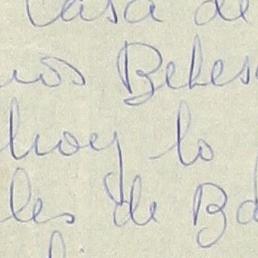 Casa de
nos Beles
hoy lo
les de Ba